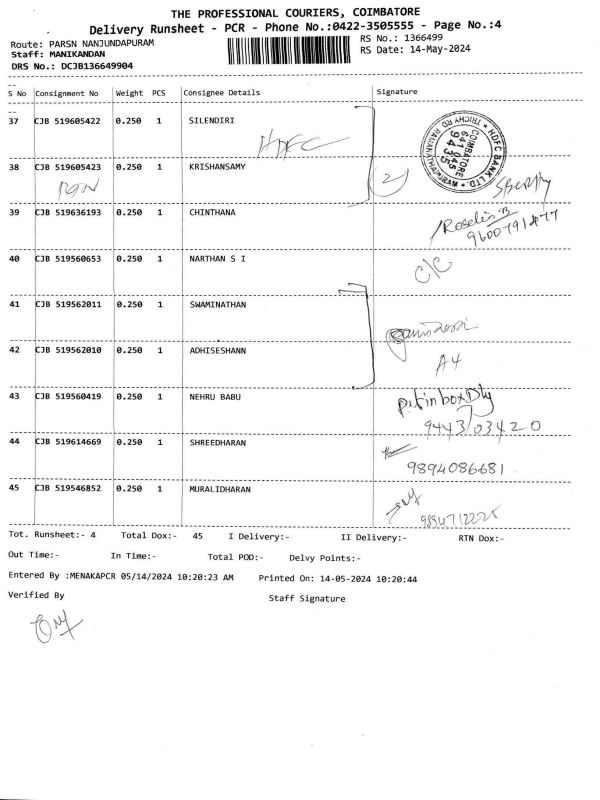 THE PROFESSIONAL COURIERS, COIMBATORE
Delivery Runsheet - PCR - Phone No.:0422-3505555 - Page No.:4
Route: PARSN NANJUNDAPURAM
RS No.: 1366499
Staff: MANIKANDAN
RS Date: 14-May-2024
DRS No.: DCJB136649904
S No Consignment No Weight PCS Consignee Details Signature
37 CJB 519605422 0.250 1 SILENDIRI
HDFC
HDFC BANK LTD. * TRICHY RD RAMANATHAPURAM *
COIMBATORE
641 045
9435
38 CJB 519605423 0.250 1 KRISHANSAMY
2
39 CJB 519636193 0.250 1 CHINTHANA
Roselin B
9600791477
40 CJB 519560653 0.250 1 NARTHAN S I
C/C
41 CJB 519562011 0.250 1 SWAMINATHAN
42 CJB 519562010 0.250 1 ADHISESHANN
A4
43 CJB 519560419 0.250 1 NEHRU BABU
put in box Dly
9443703420
44 CJB 519614669 0.250 1 SHREEDHARAN
9894086681
45 CJB 519546852 0.250 1 MURALIDHARAN
Tot. Runsheet:- 4 Total Dox:- 45 I Delivery:- II Delivery:- RTN Dox:-
Out Time:- In Time:- Total POD:- Delvy Points:-
Entered By :MENAKAPCR 05/14/2024 10:20:23 AM Printed On: 14-05-2024 10:20:44
Verified By Staff Signature